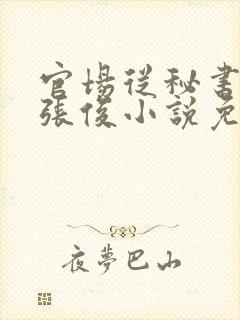 官場從秘書
張俊小說免
夜夢巴山